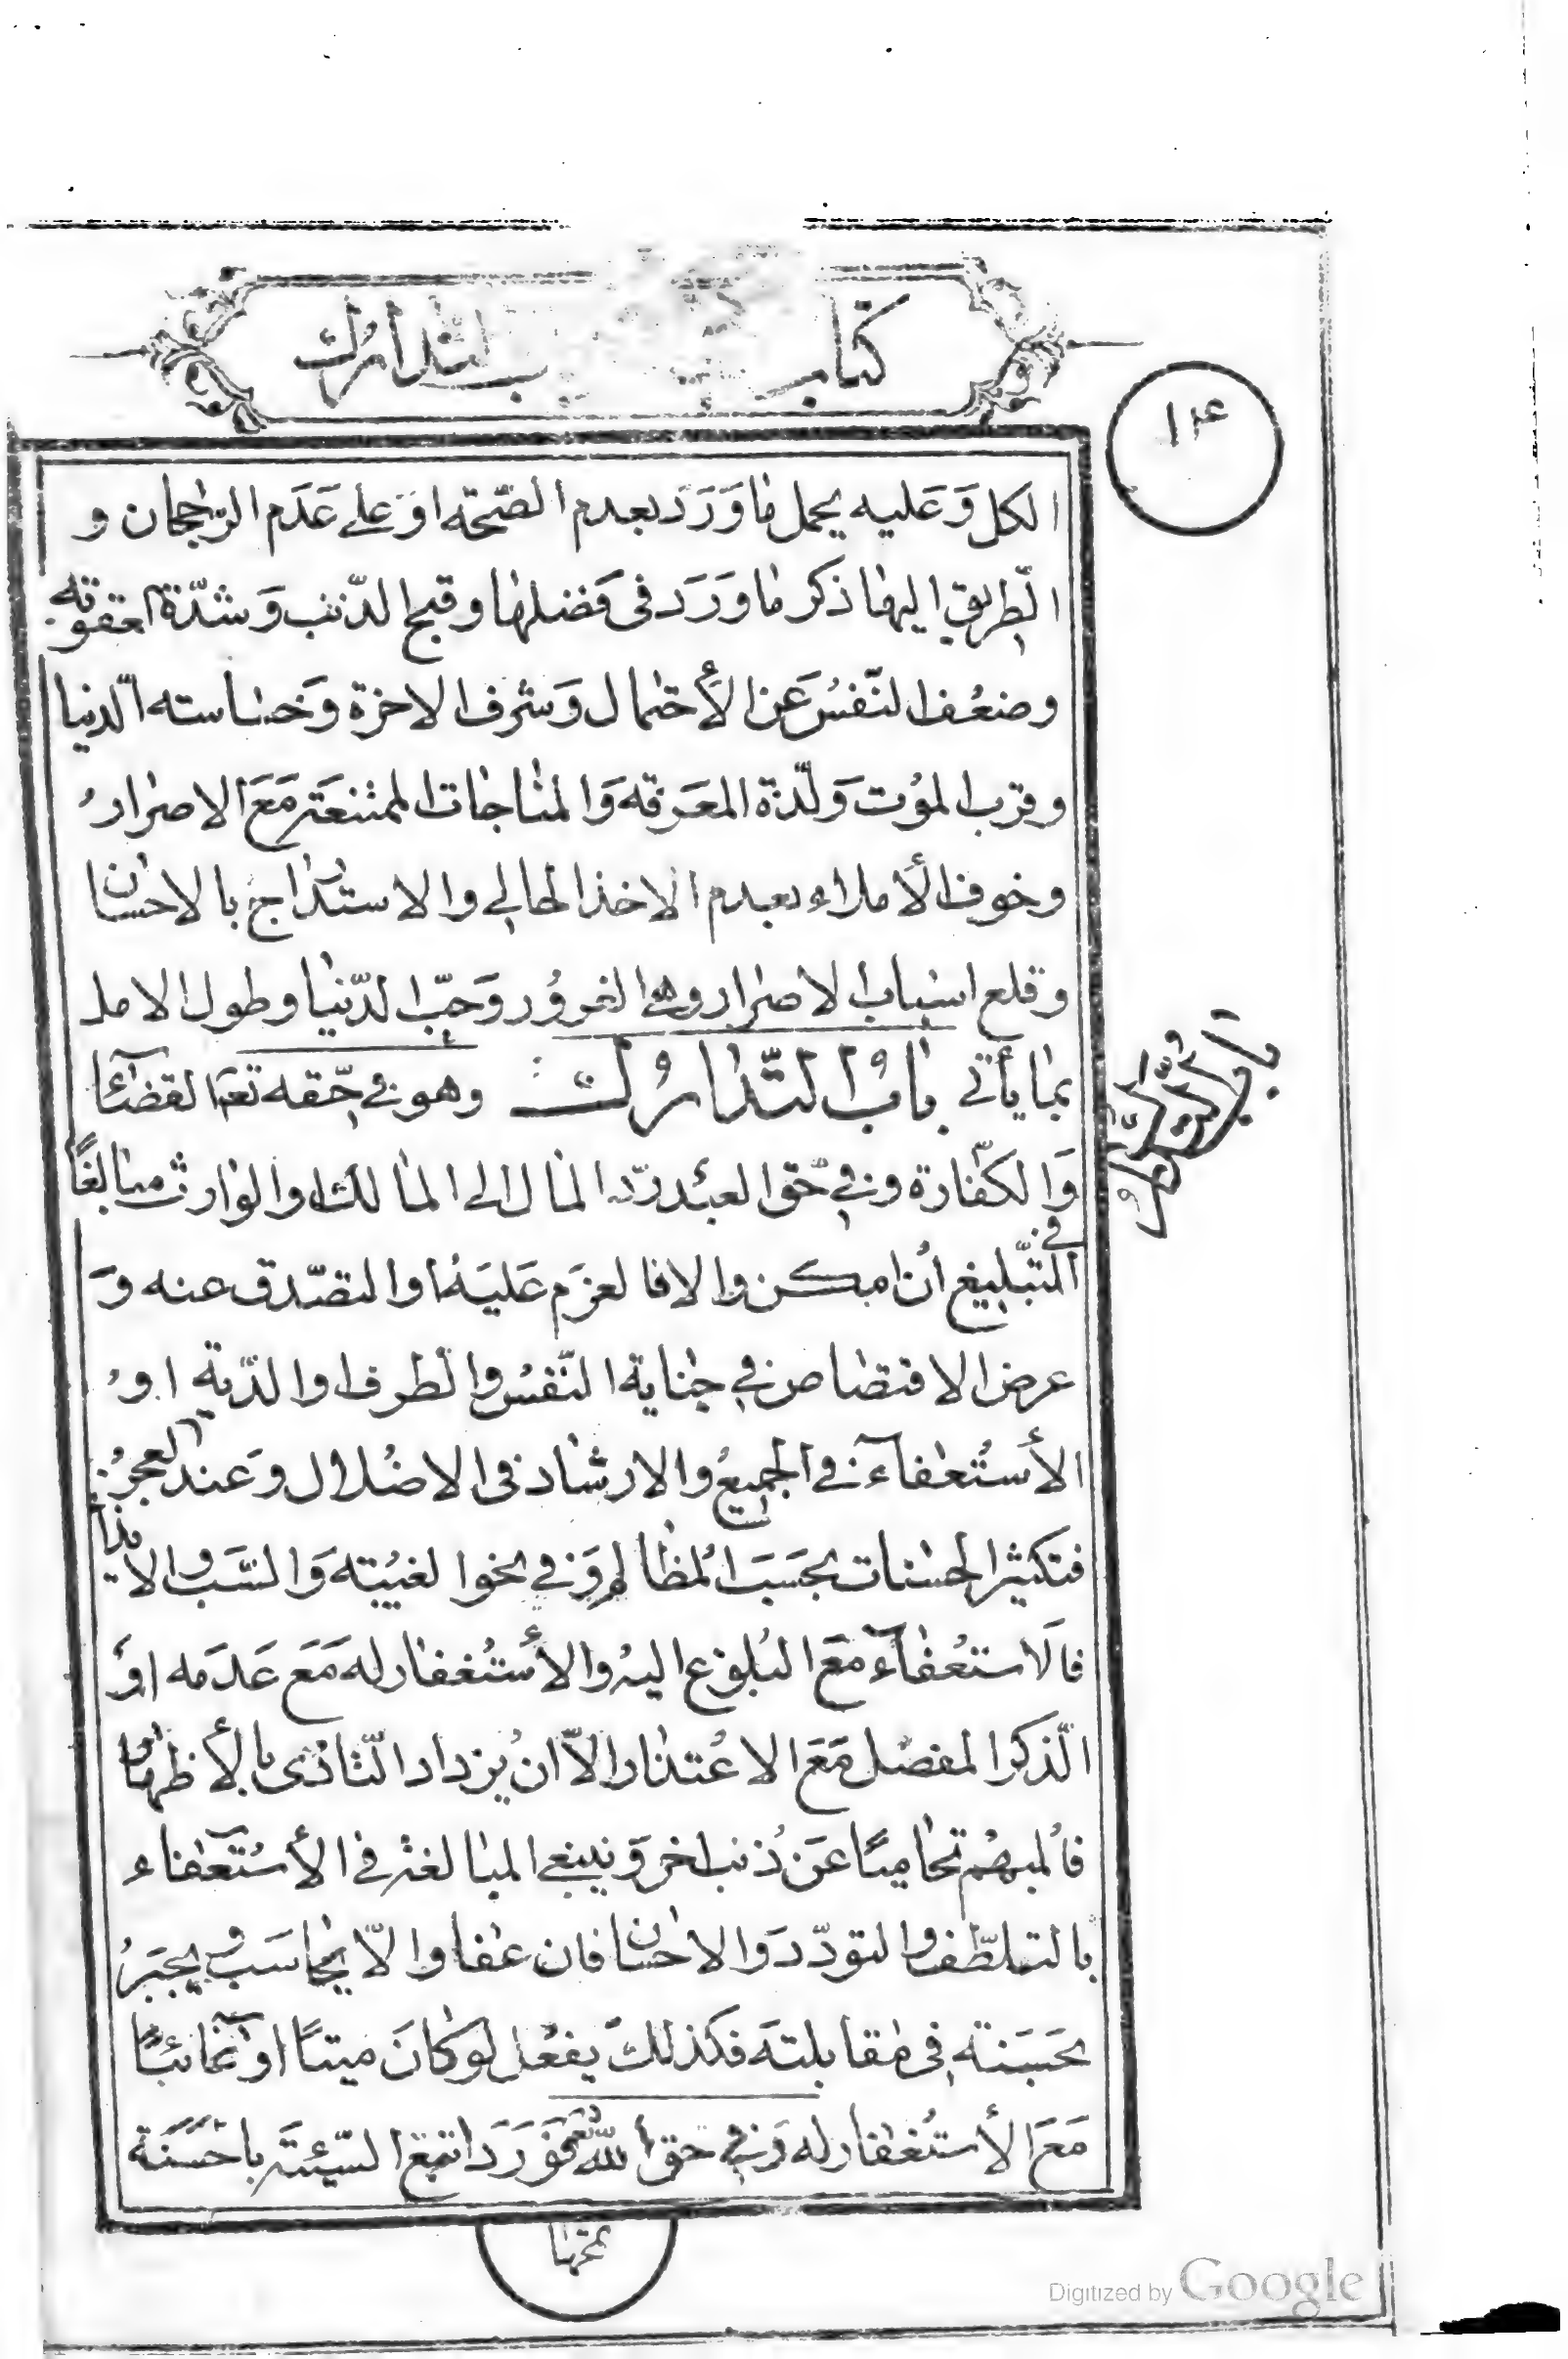 كتاب
ب التدارك
١٢٤
الكل وَعَليه يحمل ما وَرَدَ بعدم الصّحّة اوَ على عَدَم الرّجحان و
الطّريق اليها ذكر ما وَرَدَ فى فضلها وقبح الذّنب وَشدّة العقوبة
وضعف النّفسُ عَن الأحتمال وَشرف الاخرة وَخساسته الّدنيا
وقرب الموُت وَلّذة المعَرفه وَالمناجات الممتنعَة مَعَ الاصرار
وخوف الأملاء بعدم الاخذ الحالي والاستدراج بالاحسان
وقلع اسباب الاصرار وهى الغروُر وَحبّ الدّنيا وطول الامل
بما يأتى بابُ التّداركُ وهو فى حّقه تعَ القضآء
وَالكفّارة وفي حّق العبُد ردّ المال الى المالك والوارث مبالغًا
فى
التّبليغ انُ امكن والا فالعزَم عَليَهُ والتصّدق عنه وَ
عرض الاقتصاص في جناية النّفسُ والطرف والدّية اوُ
الأستُعفآء في الجميعُ والارشاد فى الاضلال وَعند العجزُ
فتكثير الحسنات بحَسَبَ المُظالم وَفي نحو الغيُبته وَالسَّبّ والايذاء
فالَاستعُفآء مَعَ البُلوغ اليهُ والأستُغفار له مَعَ عَدَمه اوَ
الّذكر المفصّل مَعَ الاعُتذار الّا انُ يزداد التّأذى بالأظهار
فاُلمبهُم تحاميًا عَنُ ذنب اخر وَينبغى المبالغة فى الأستُعفاء
بالتلطّف والتودّد وَالاحسان فان عفا والّا يحاسَب ويجبَرُ
بحَسَنته فى مقابلته فكذلكَ يفعُل لو كانَ ميتًا اوُ غائبًا
مَعَ الأستُغفار له وَفي حق الله تعَ فوَرَدَ اتبع السّيئة باحَسَنَة
باب التدارك
تمحها
Digitized by Google